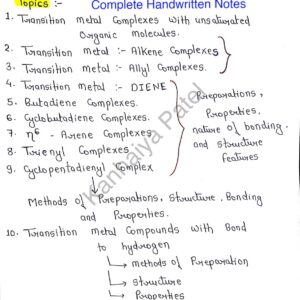 Topics :-
Complete Handwritten Notes
1. Transition metal Complexes with unsaturated
Organic molecules.
2. Transition metal :- Alkene Complexes
3. Transition metal :- Allyl Complexes.
4. Transition metal :- DIENE
5. Butadiene Complexes.
6. Cyclobutadiene Complexes.
7. η⁶ - Arene Complexes
8. Trienyl Complexes
9. Cyclopentadienyl Complex
Preparations,
Properties,
nature of bonding
and structure
features
Methods of Preparations, Structure, Bonding
and Properties.
10. Transition metal Compounds with Bond
to hydrogen
↳ methods of Preparation
↳ Structure
↳ Properties
Kanhaiya Patel